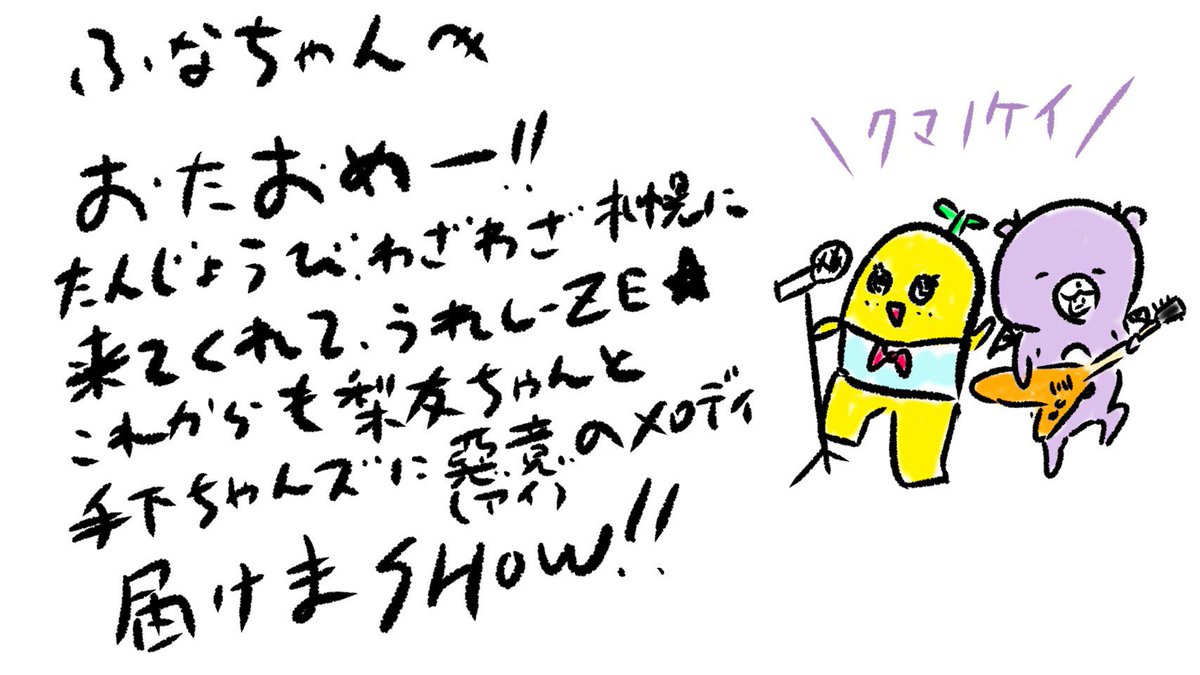 ふなちゃんへ
おたおめー!!
たんじょうび、わざわざ札幌に
来てくれて、うれしーZE★
これからも梨友ちゃんと
手下ちゃんズに惡意のメロディ
(アイ)
届けまSHOW!!
\クマノケイ/